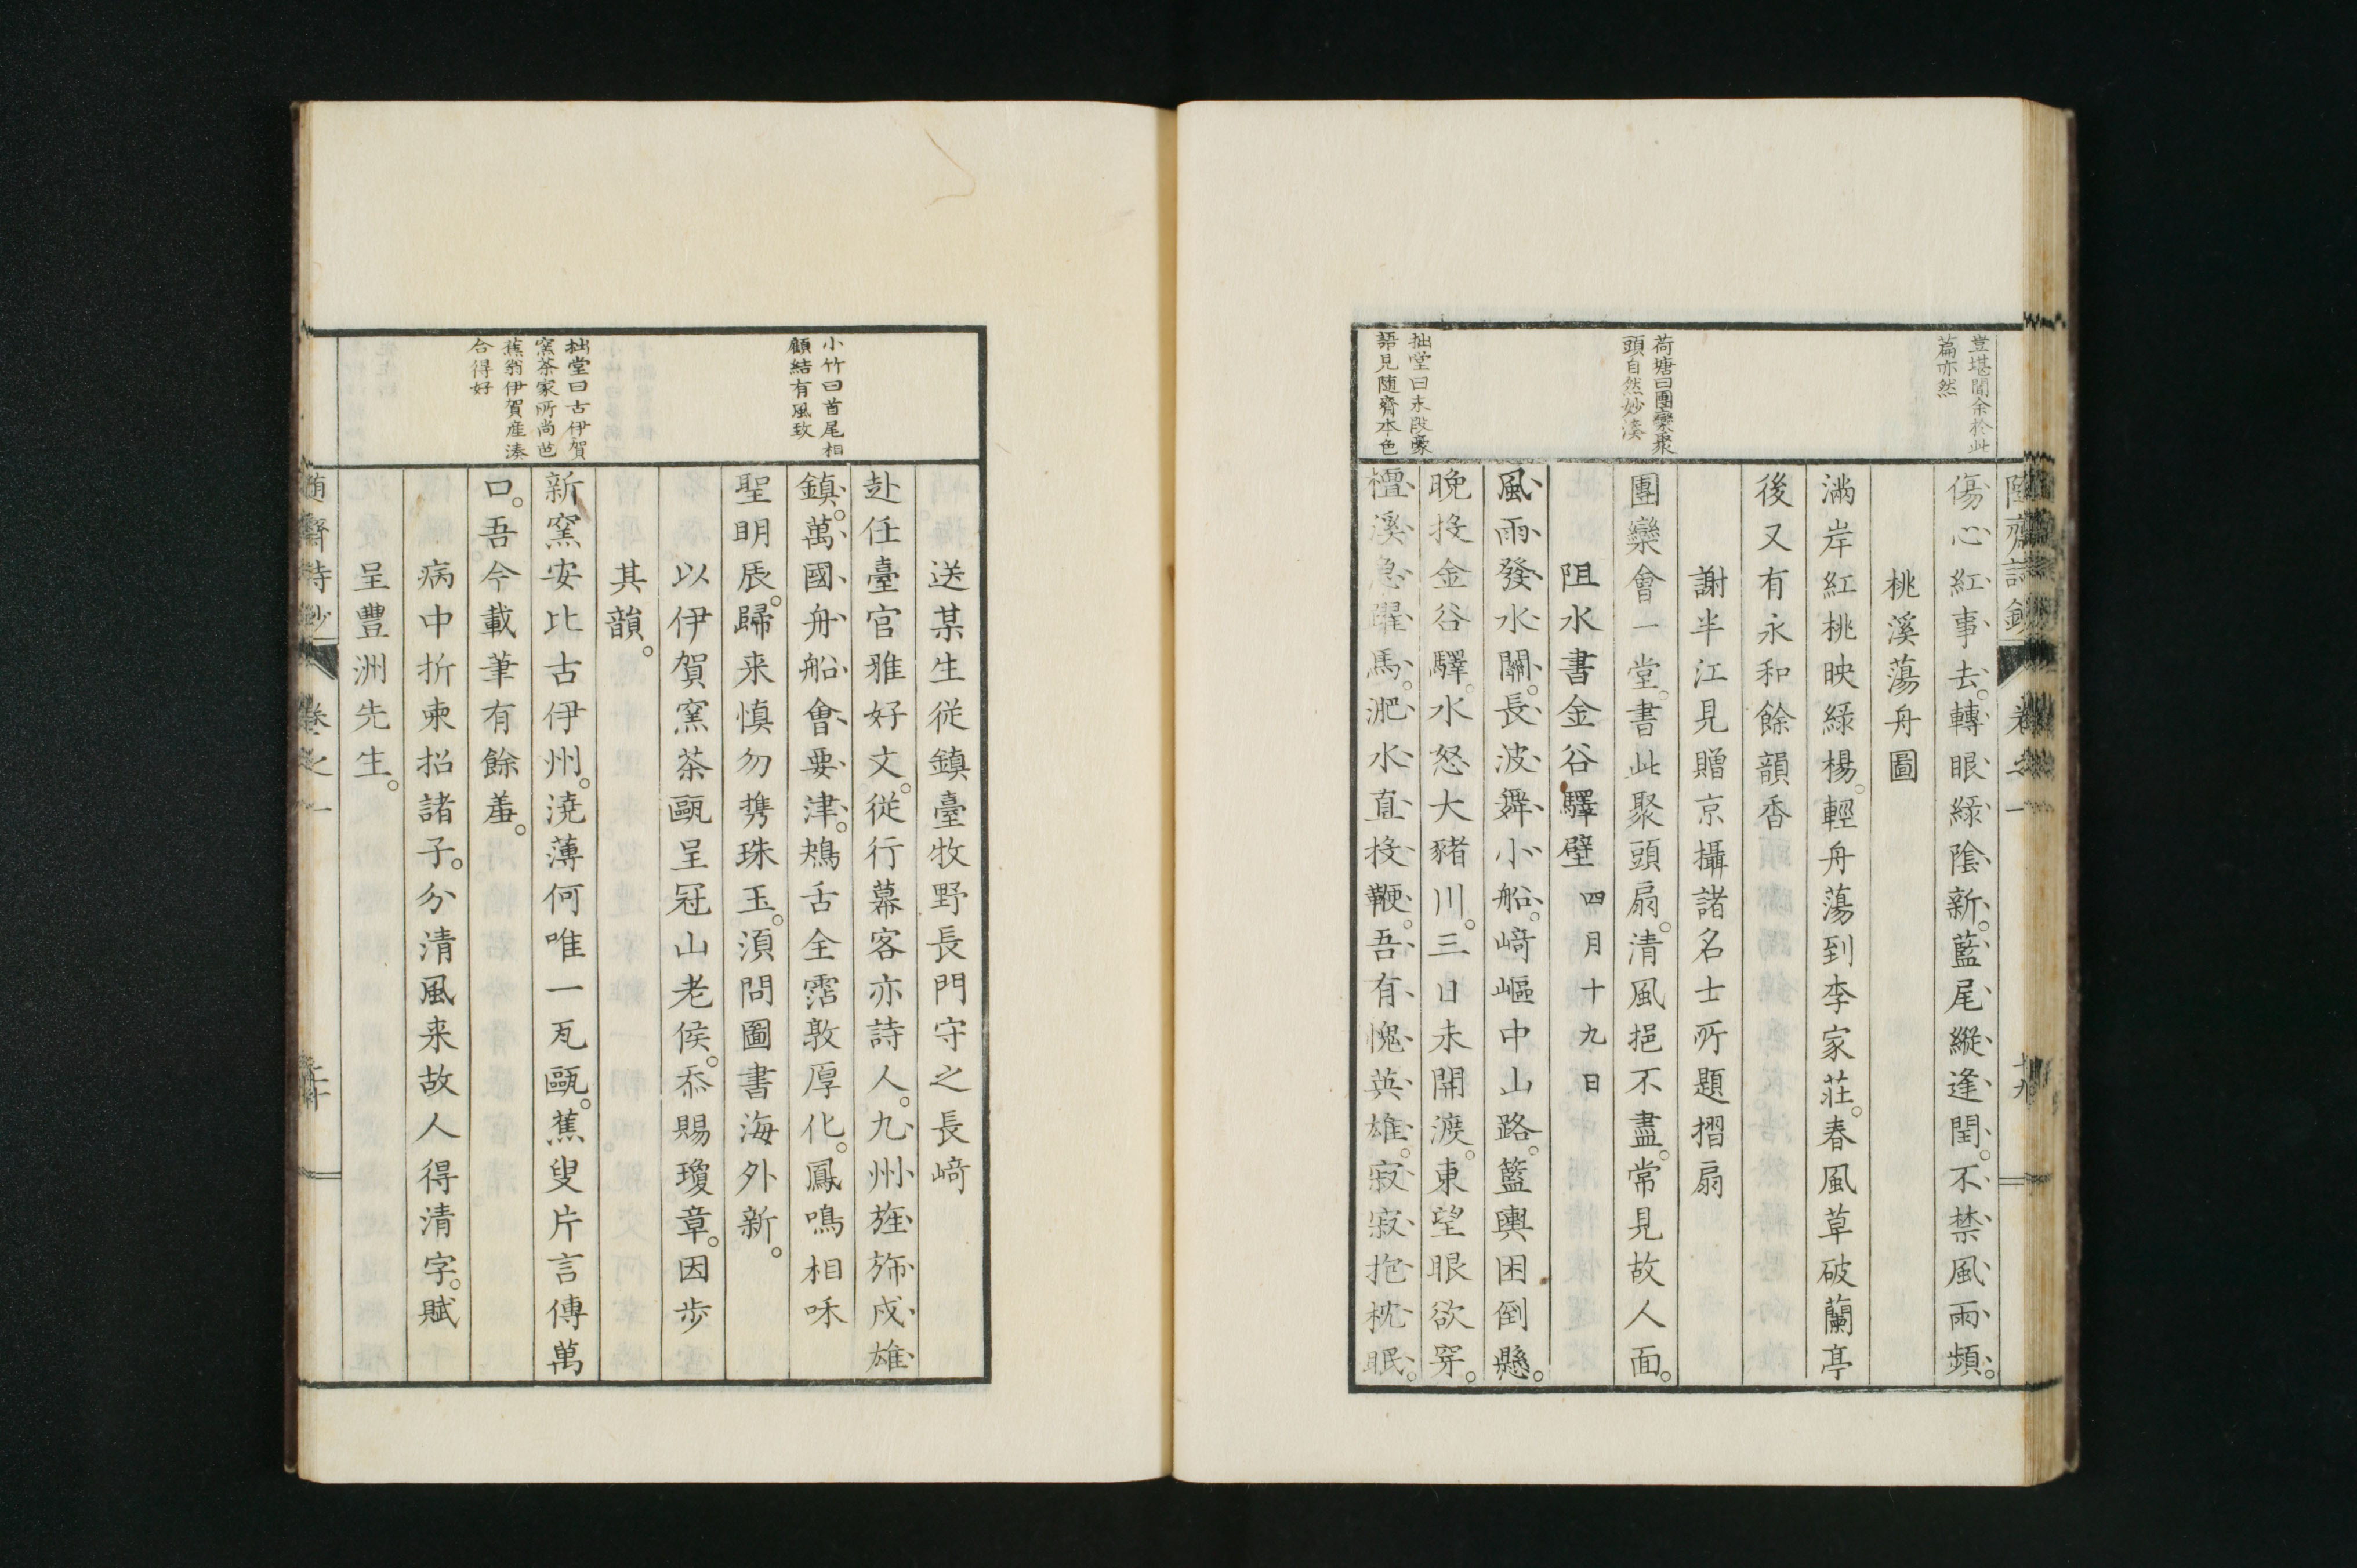 豈堪聞余於此
篇亦然
荷塘曰團欒聚
頭自然妙湊
拙堂曰末段豪
語見随齋本色
傷心紅事去。轉眼緑陰新。藍尾縱逢閏。不禁風雨頻。
桃溪蕩舟圖
滿岸紅桃映緑楊。輕舟蕩到李家莊。春風草破蘭亭
後又有永和餘韻香
謝半江見贈京攝諸名士所題摺扇
團欒會一堂。書此聚頭扇。清風挹不盡。常見故人面。
阻水書金谷驛壁 四月十九日
風雨發水關。長波舞小船。﨑嶇中山路。籃輿困倒懸。
晩投金谷驛。水怒大豬川。三日未開渡。東望眼欲穿。
檀溪急躍馬。淝水直投鞭。吾有愧英雄。寂寂抱枕眠。
随齋詩鈔 卷之一 十九
小竹曰首尾相
顧結有風致
拙堂曰古伊賀
窯茶家所尚芭
蕉翁伊賀産湊
合得好
送某生従鎮臺牧野長門守之長﨑
赴任臺官雅好文。従行幕客亦詩人。九州旌斾成雄
鎮。萬國舟船會要津。鴂舌全霑敦厚化。鳳鳴相和
聖明辰。歸来慎勿携珠玉。湏問圖書海外新。
以伊賀窯茶甌呈冠山老侯。忝賜瓊章。因歩
其韻。
新窯安比古伊州。澆薄何唯一瓦甌。蕉叟片言傳萬
口。吾今載筆有餘羞。
病中折柬招諸子。分清風来故人得清字。賦
呈豐洲先生。
随齋詩鈔 卷之一 二十